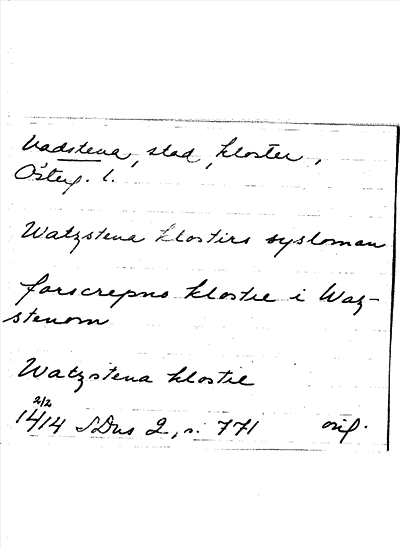 Vadstena, stad, kloster,
Österg. l.
Watzstena klostirs sysloman
forscrepno klostre i Waz-
stenom
Watzstena klostre
2/2
1414 SDns 2, s. 771 orig.